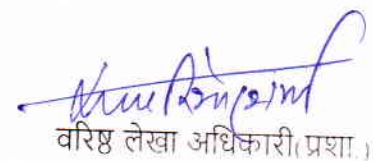 वरिष्ठ लेखा अधिकारी(प्रशा.)